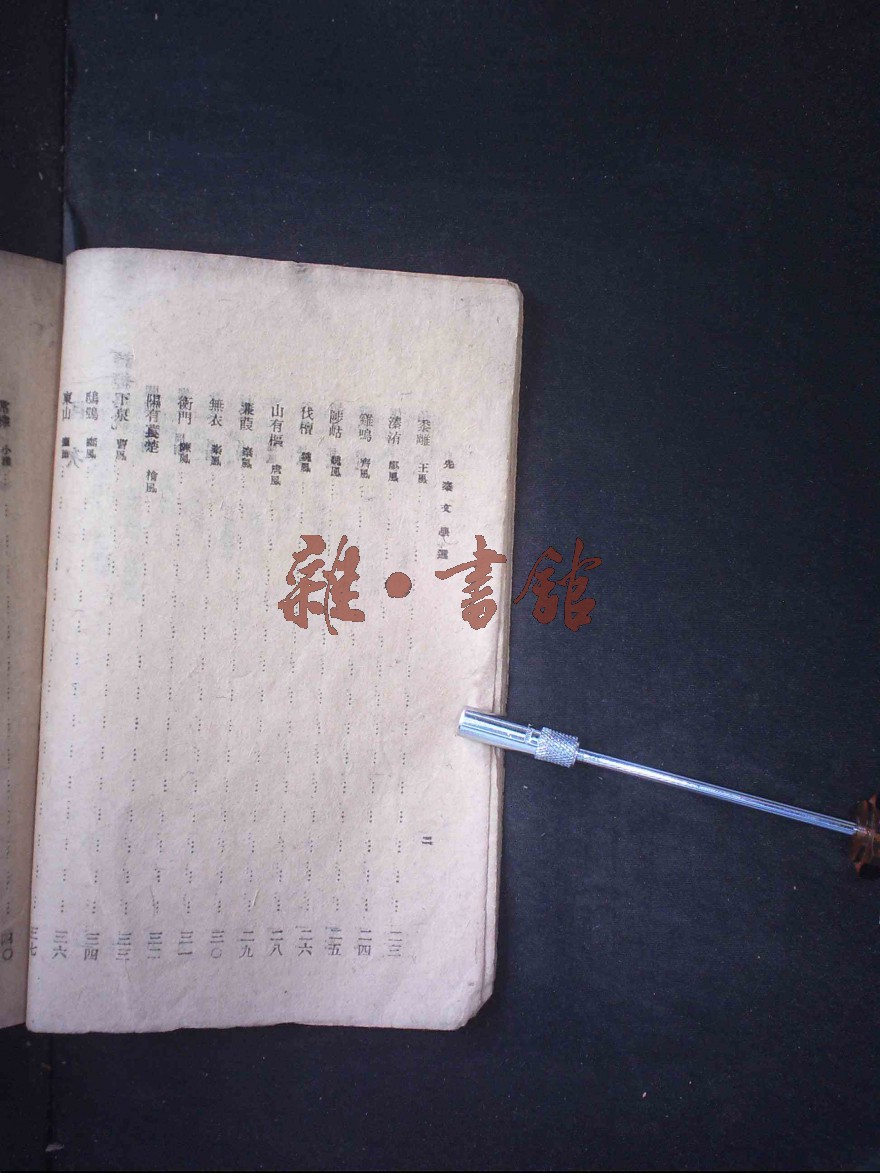 先秦文學選 二
黍離 王風 …… 二三
溱洧 鄭風 …… 二四
雞鳴 齊風 …… 二五
陟岵 魏風 …… 二六
伐檀 魏風 …… 二八
山有樞 唐風 …… 二九
蒹葭 秦風 …… 三〇
無衣 秦風 …… 三一
衡門 陳風 …… 三二
隰有萇楚 檜風 …… 三三
下泉 曹風 …… 三四
鴟鴞 豳風 …… 三六
東山 豳風 …… 三七
小雅 …… 四〇
雜·書館